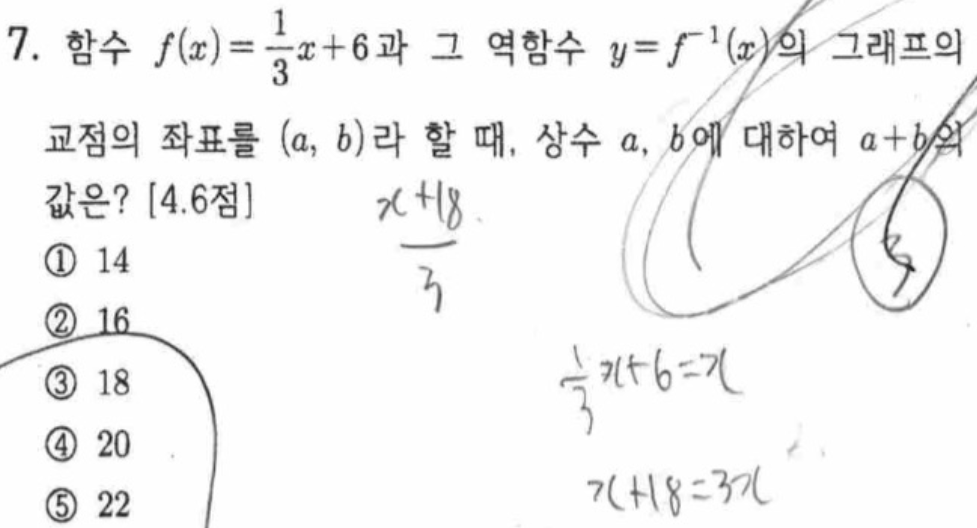 7. 함수 f(x)=1/3x+6과 그 역함수 y=f⁻¹(x)의 그래프의
교점의 좌표를 (a, b)라 할 때, 상수 a, b에 대하여 a+b의
값은? [4.6점]
x+18
3
① 14
② 16
③ 18
④ 20
⑤ 22
1/3x+6=x
x+18=3x